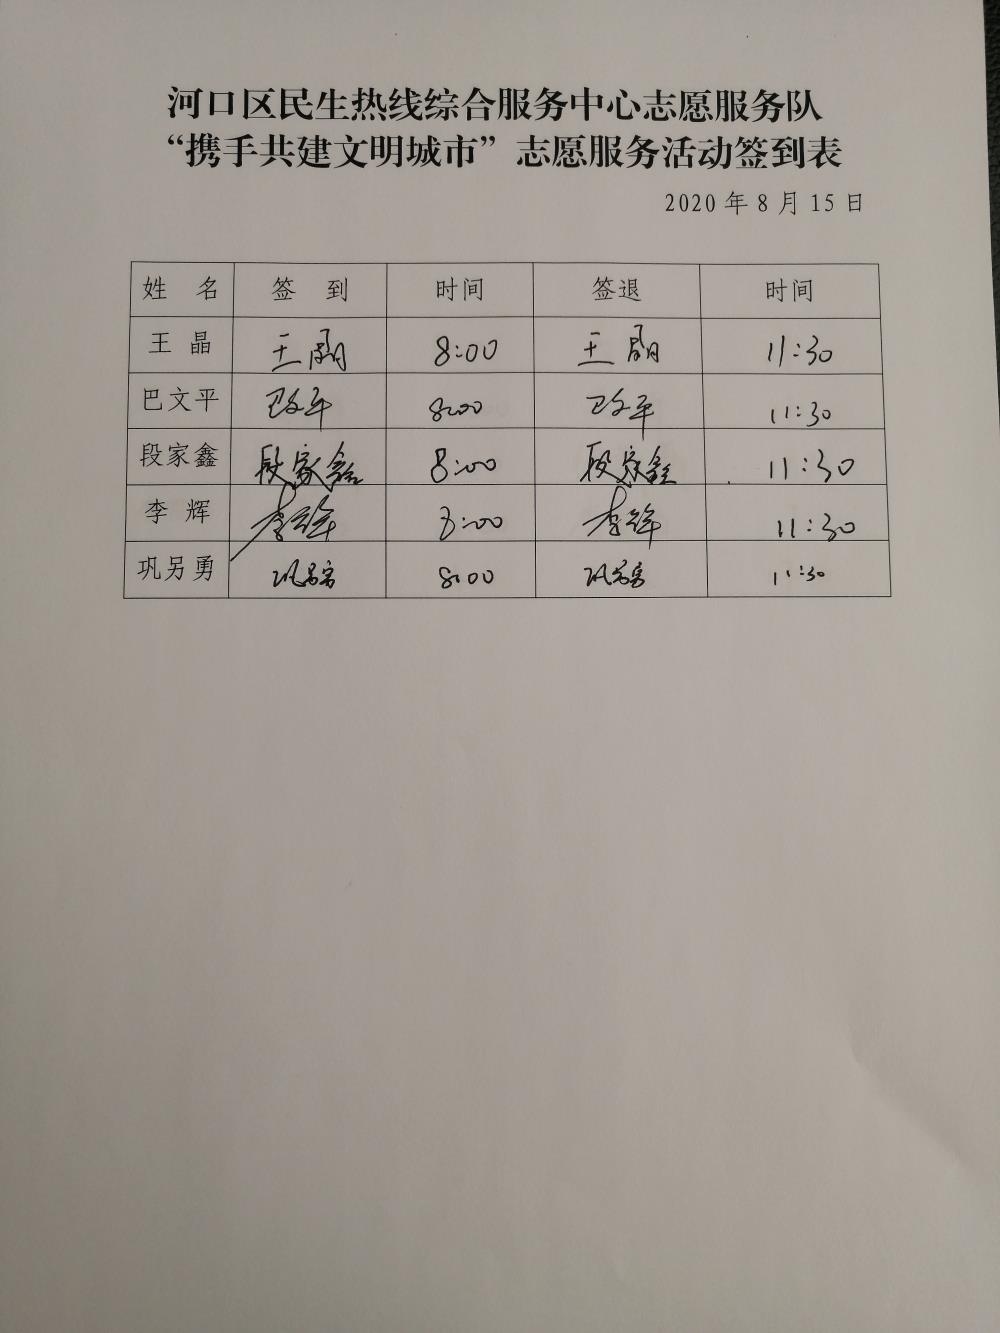 河口区民生热线综合服务中心志愿服务队
“携手共建文明城市”志愿服务活动签到表
2020年8月15日
姓 名 签 到 时间 签退 时间
王 晶 王晶 8:00 王晶 11:30
巴文平 巴文平 8:00 巴文平 11:30
段家鑫 段家鑫 8:00 段家鑫 11:30
李 辉 李辉 8:00 李辉 11:30
巩另勇 巩另勇 8:00 巩另勇 11:30